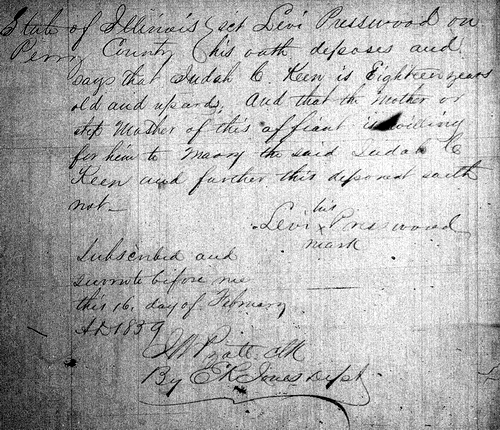 State of Illinois } sct Levi Presswood on
Perry County } his oath deposes and
says that Judah C. Keen is Eighteen years
old and upards, And that the Mother or
step Mother of this affiant is willing
for him to Marry the said Judah C
Keen and further this deponent saith
not —
his
Levi x Presswood
mark
Subscribed and
sworn to before me
this 16. day of February
AD 1839
Pyatt. Clk
By E K Jones Dept